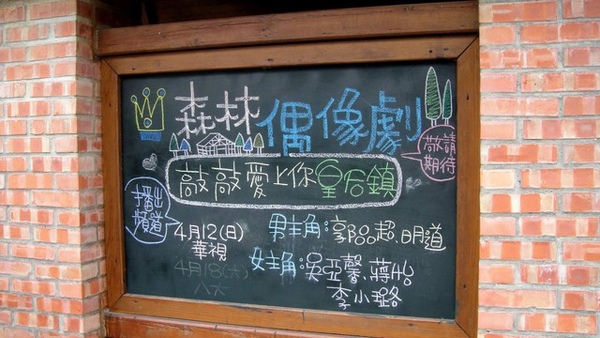 森林偶像劇
敬請
期待
敲敲愛上你皇后鎮
播出
頻道
4月12(日)
華視
4月18(六)
八大
男主角:郭品超.明道
女主角:吳亞馨、蔣怡
李小璐